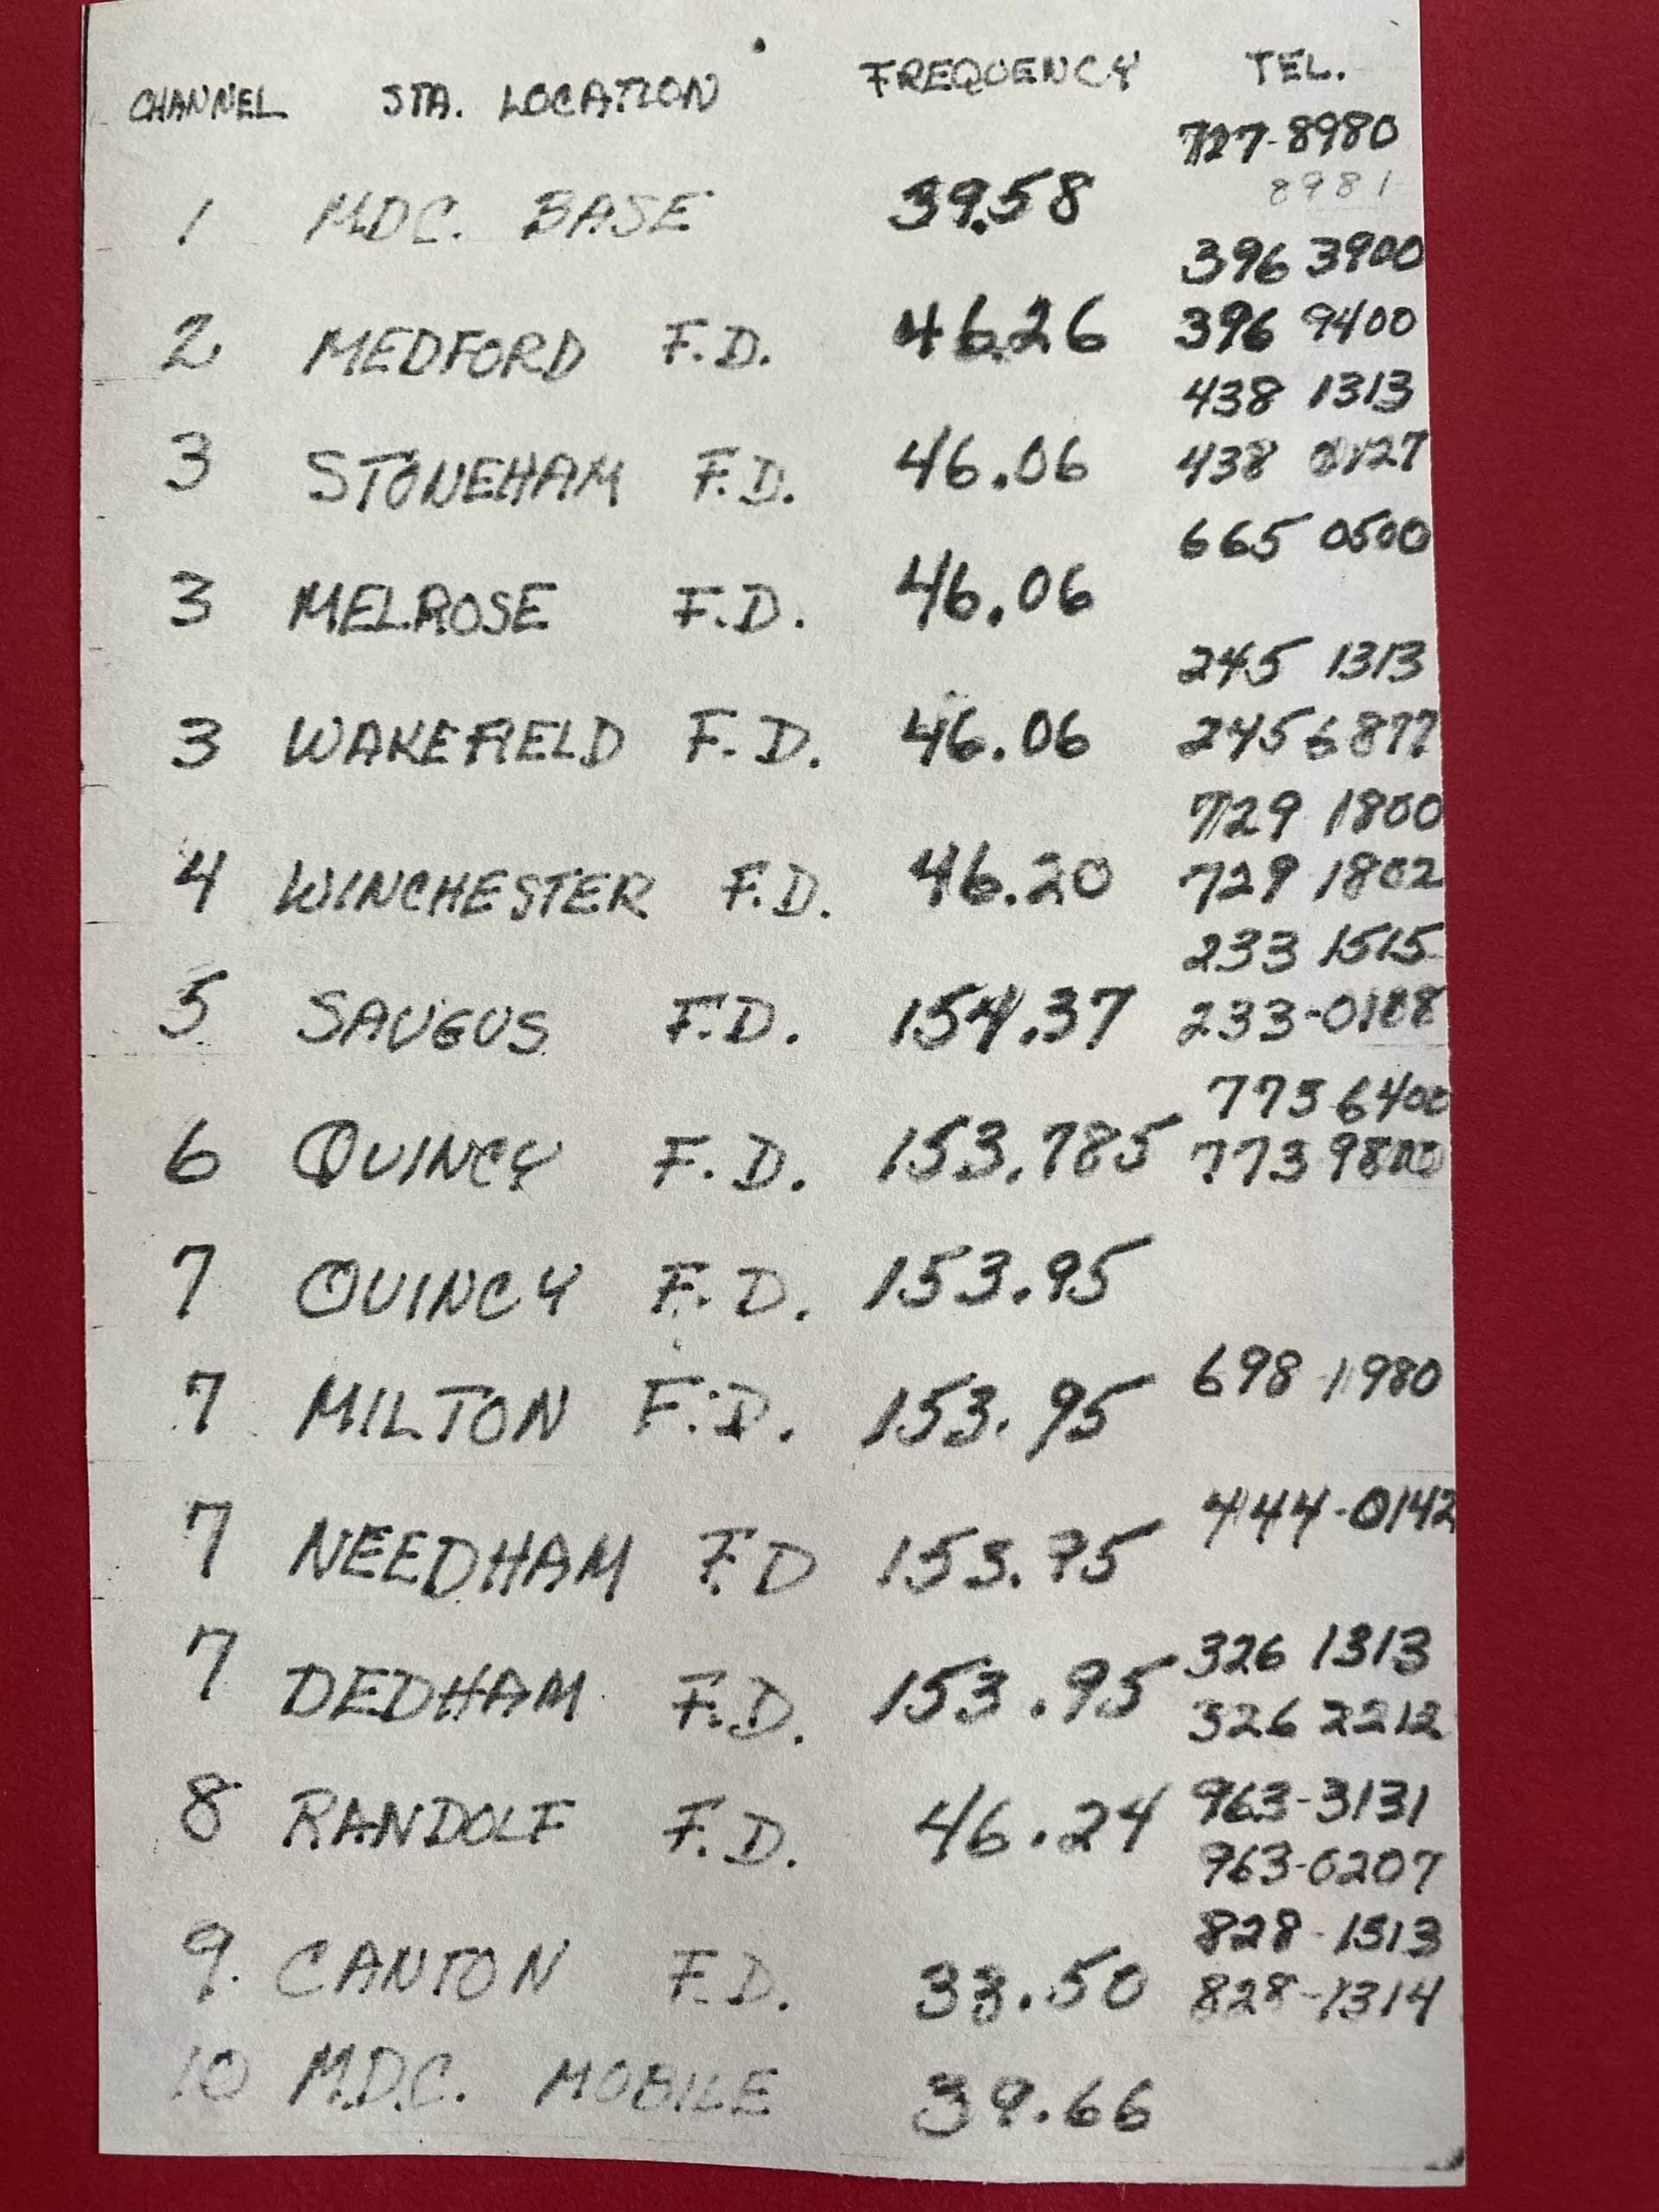 CHANNEL STA. LOCATION FREQUENCY TEL.
727-8980
1 M.D.C. BASE 39.58 8981
396 3900
2 MEDFORD F.D. 46.26 396 9400
438 1313
3 STONEHAM F.D. 46.06 438 0127
665 0500
3 MELROSE F.D. 46.06
245 1313
3 WAKEFIELD F.D. 46.06 245 6877
729 1800
4 WINCHESTER F.D. 46.20 729 1802
233 1515
5 SAUGUS F.D. 154.37
773 6400
6 QUINCY F.D. 153.785 773 9800
7 QUINCY F.D. 153.95
7 MILTON F.D. 153.95 698 1980
7 NEEDHAM F.D 444-0142
7 DEDHAM F.D. 153.95 326 1313
326 2212
8 RANDOLF F.D. 46.24 963-3131
963-0207
828-1313
9. CANTON F.D. 33.50 828-1314
10 M.D.C. MOBILE 39.66